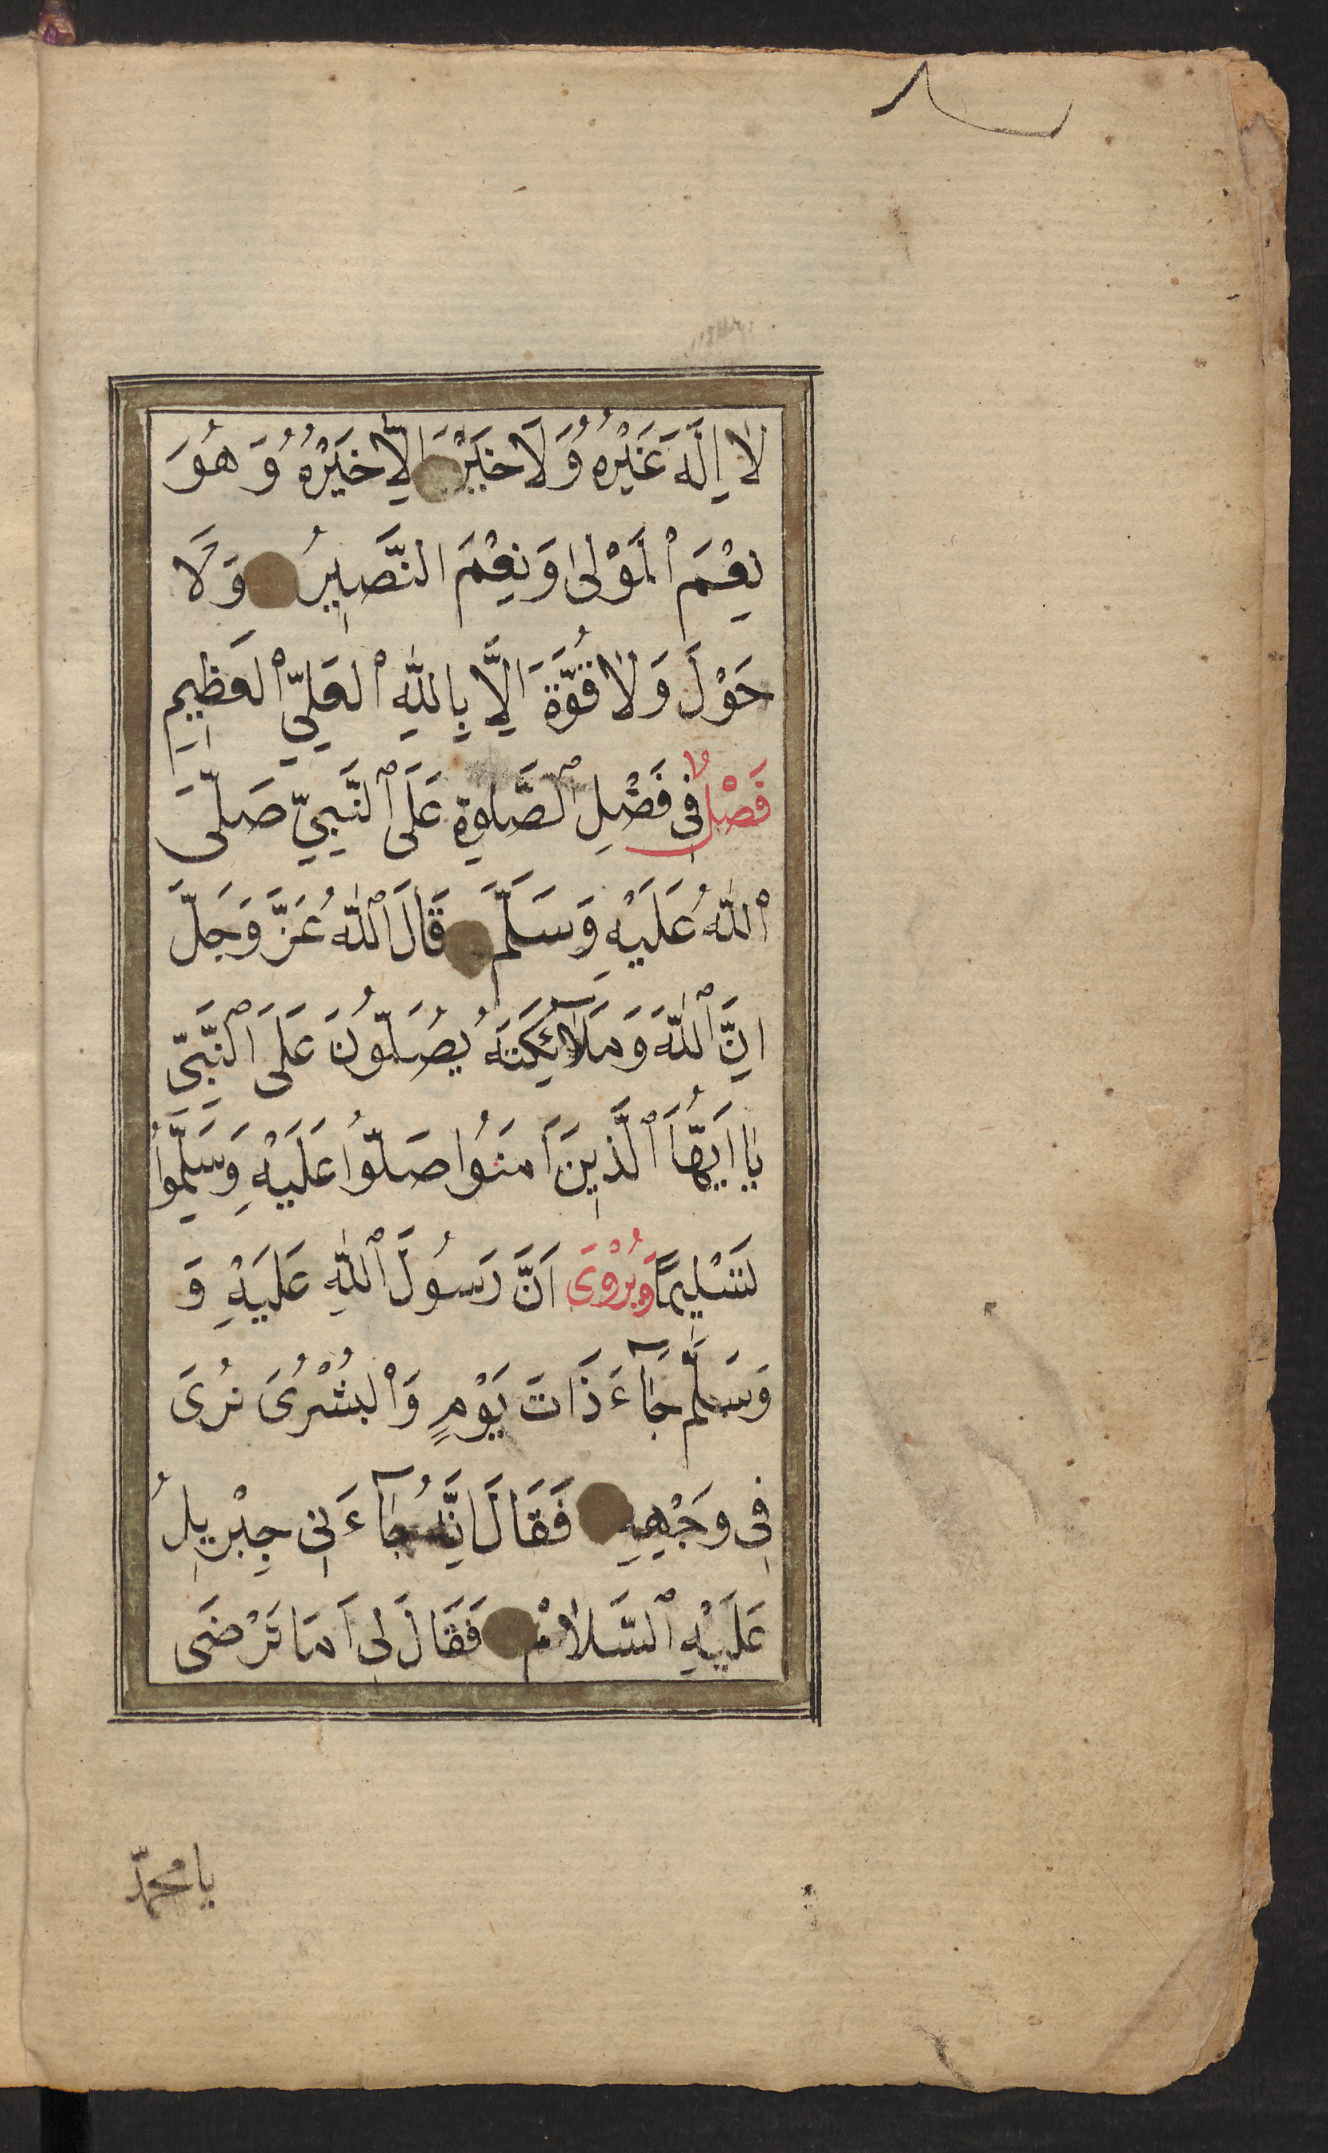 لَا اِلَهَ غَيْرُهُ وَلَا خَيْرَ اِلَّا خَيْرُهُ وَهُوَ
نِعْمَ ٱلْمَوْلٰى وَنِعْمَ النَّصِيرُ وَلَا
حَوْلَ وَلَا قُوَّةَ اِلَّا بِاللّٰهِ ٱلْعَلِيِّ ٱلْعَظِيمِ
فَصْلٌ فِى فَضْلِ ٱلصَّلٰوةِ عَلَى ٱلنَّبِيِّ صَلَّى
ٱللّٰهُ عَلَيْهِ وَسَلَّمَ قَالَ ٱللّٰهُ عَزَّ وَجَلَّ
اِنَّ ٱللّٰهَ وَمَلَآئِكَتَهُ يُصَلُّونَ عَلَى ٱلنَّبِىِّ
يَا اَيُّهَا ٱلَّذِينَ اَمَنُوا صَلُّوا عَلَيْهِ وَسَلِّمُوا
تَسْلِيمًا وَيُرْوَى اَنَّ رَسُولَ ٱللّٰهِ عَلَيْهِ وَ
وَسَلَّمَ جَآءَ ذَاتَ يَوْمٍ وَالْبُشْرٰى تُرَى
فِى وَجْهِهِ فَقَالَ اِنَّهُ جَآءَنِى جِبْرِيلُ
عَلَيْهِ ٱلسَّلَامُ فَقَالَ لِى اَمَا تَرْضَى
يا محمّد